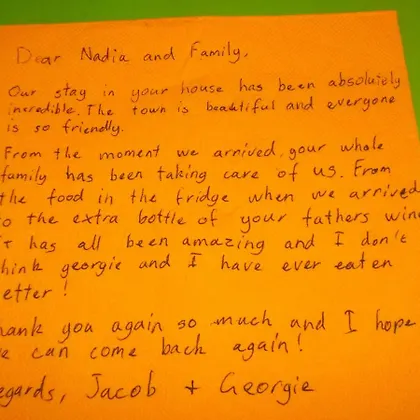 Dear Nadia and Family,
Our stay in your house has been absolutely
incredible. The town is beautiful and everyone
is so friendly.
From the moment we arrived, your whole
family has been taking care of us. From
the food in the fridge when we arrived
to the extra bottle of your fathers wine
it has all been amazing and I don't
think georgie and I have ever eaten
better!
Thank you again so much and I hope
we can come back again!
Regards, Jacob + Georgie